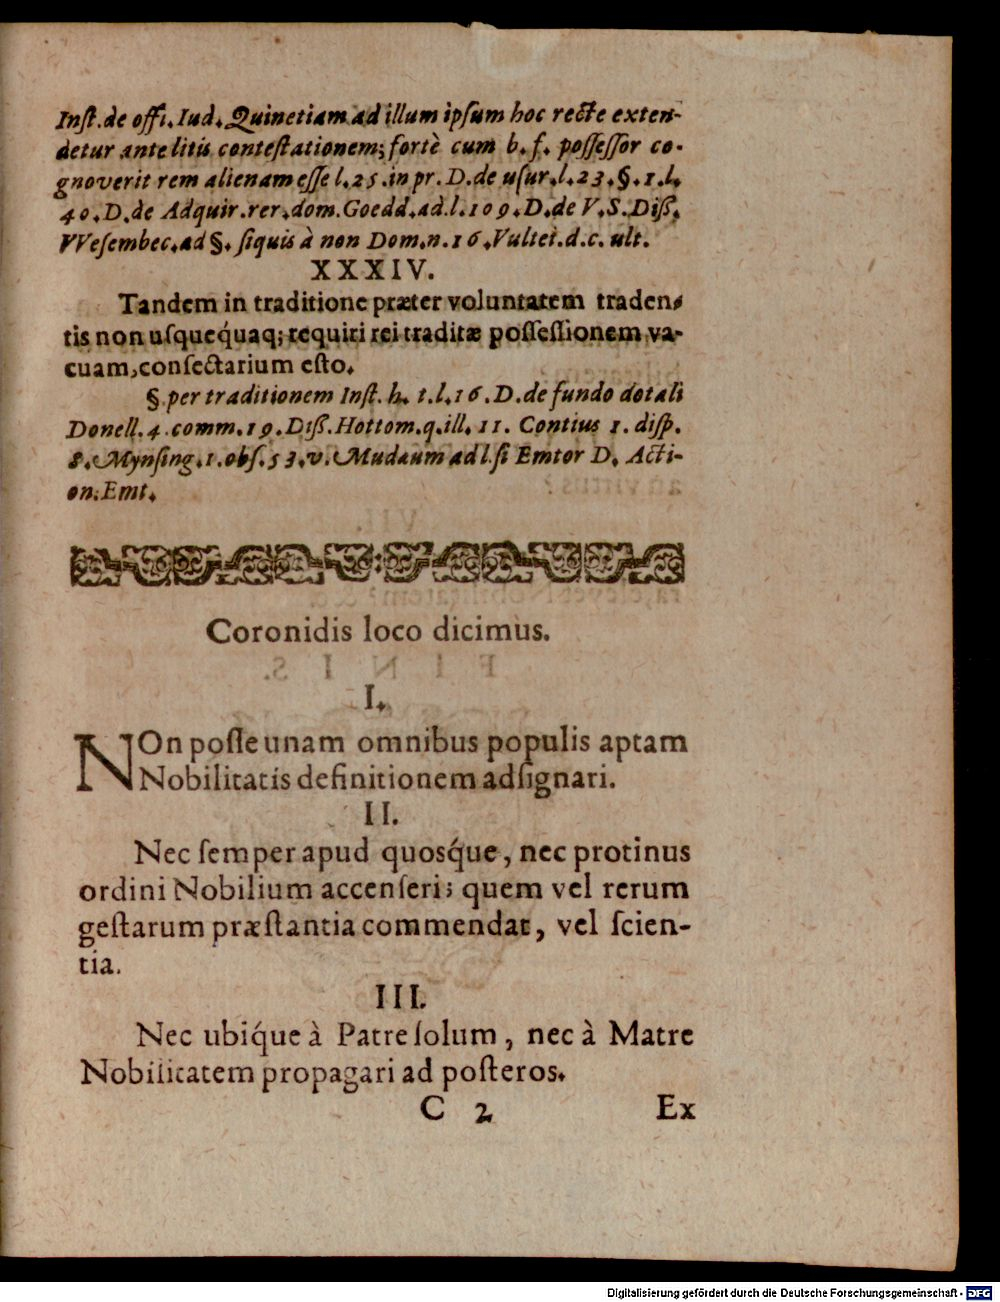 Inſt. de offi. Iud. Quinetiam ad illum ipſum hoc recte exten-
detur ante litis conteſtationem; fortè cum b. f. poſſeſſor co-
gnoverit rem alienam eſſe l. 25. in pr. D. de uſur. l. 23. §. 1. l.
40. D. de Adquir. rer. dom. Goedd. ad. l. 109. D. de V. S. Diß.
VVeſembec. ad §. ſiquis à non Dom. n. 16. Vultei. d. c. ult.
XXXIV.
Tandem in traditione præter voluntatem traden-
tis non uſquequáq; requiri rei traditæ poſſeſſionem va-
cuam, conſectarium eſto.
§. per traditionem Inſt. h. t. l. 16. D. de fundo dotali
Donell. 4. comm. 19. Diß. Hottom. q. ill. 11. Contius 1. diſp.
8. Mynſing. 1. obſ. 53. v. Mudæum ad l. ſi Emtor D. Acti-
on. Emt.
Coronidis loco dicimus.
I.
NOn poſſe unam omnibus populis aptam
Nobilitatis definitionem adſignari.
II.
Nec ſemper apud quosq́ue, nec protinus
ordini Nobilium accenſeri; quem vel rerum
geſtarum præſtantia commendat, vel ſcien-
tia.
III.
Nec ubiq́ue à Patre ſolum, nec à Matre
Nobilitatem propagari ad poſteros.
C 2 Ex
Digitalisierung gefördert durch die Deutsche Forschungsgemeinschaft - DFG